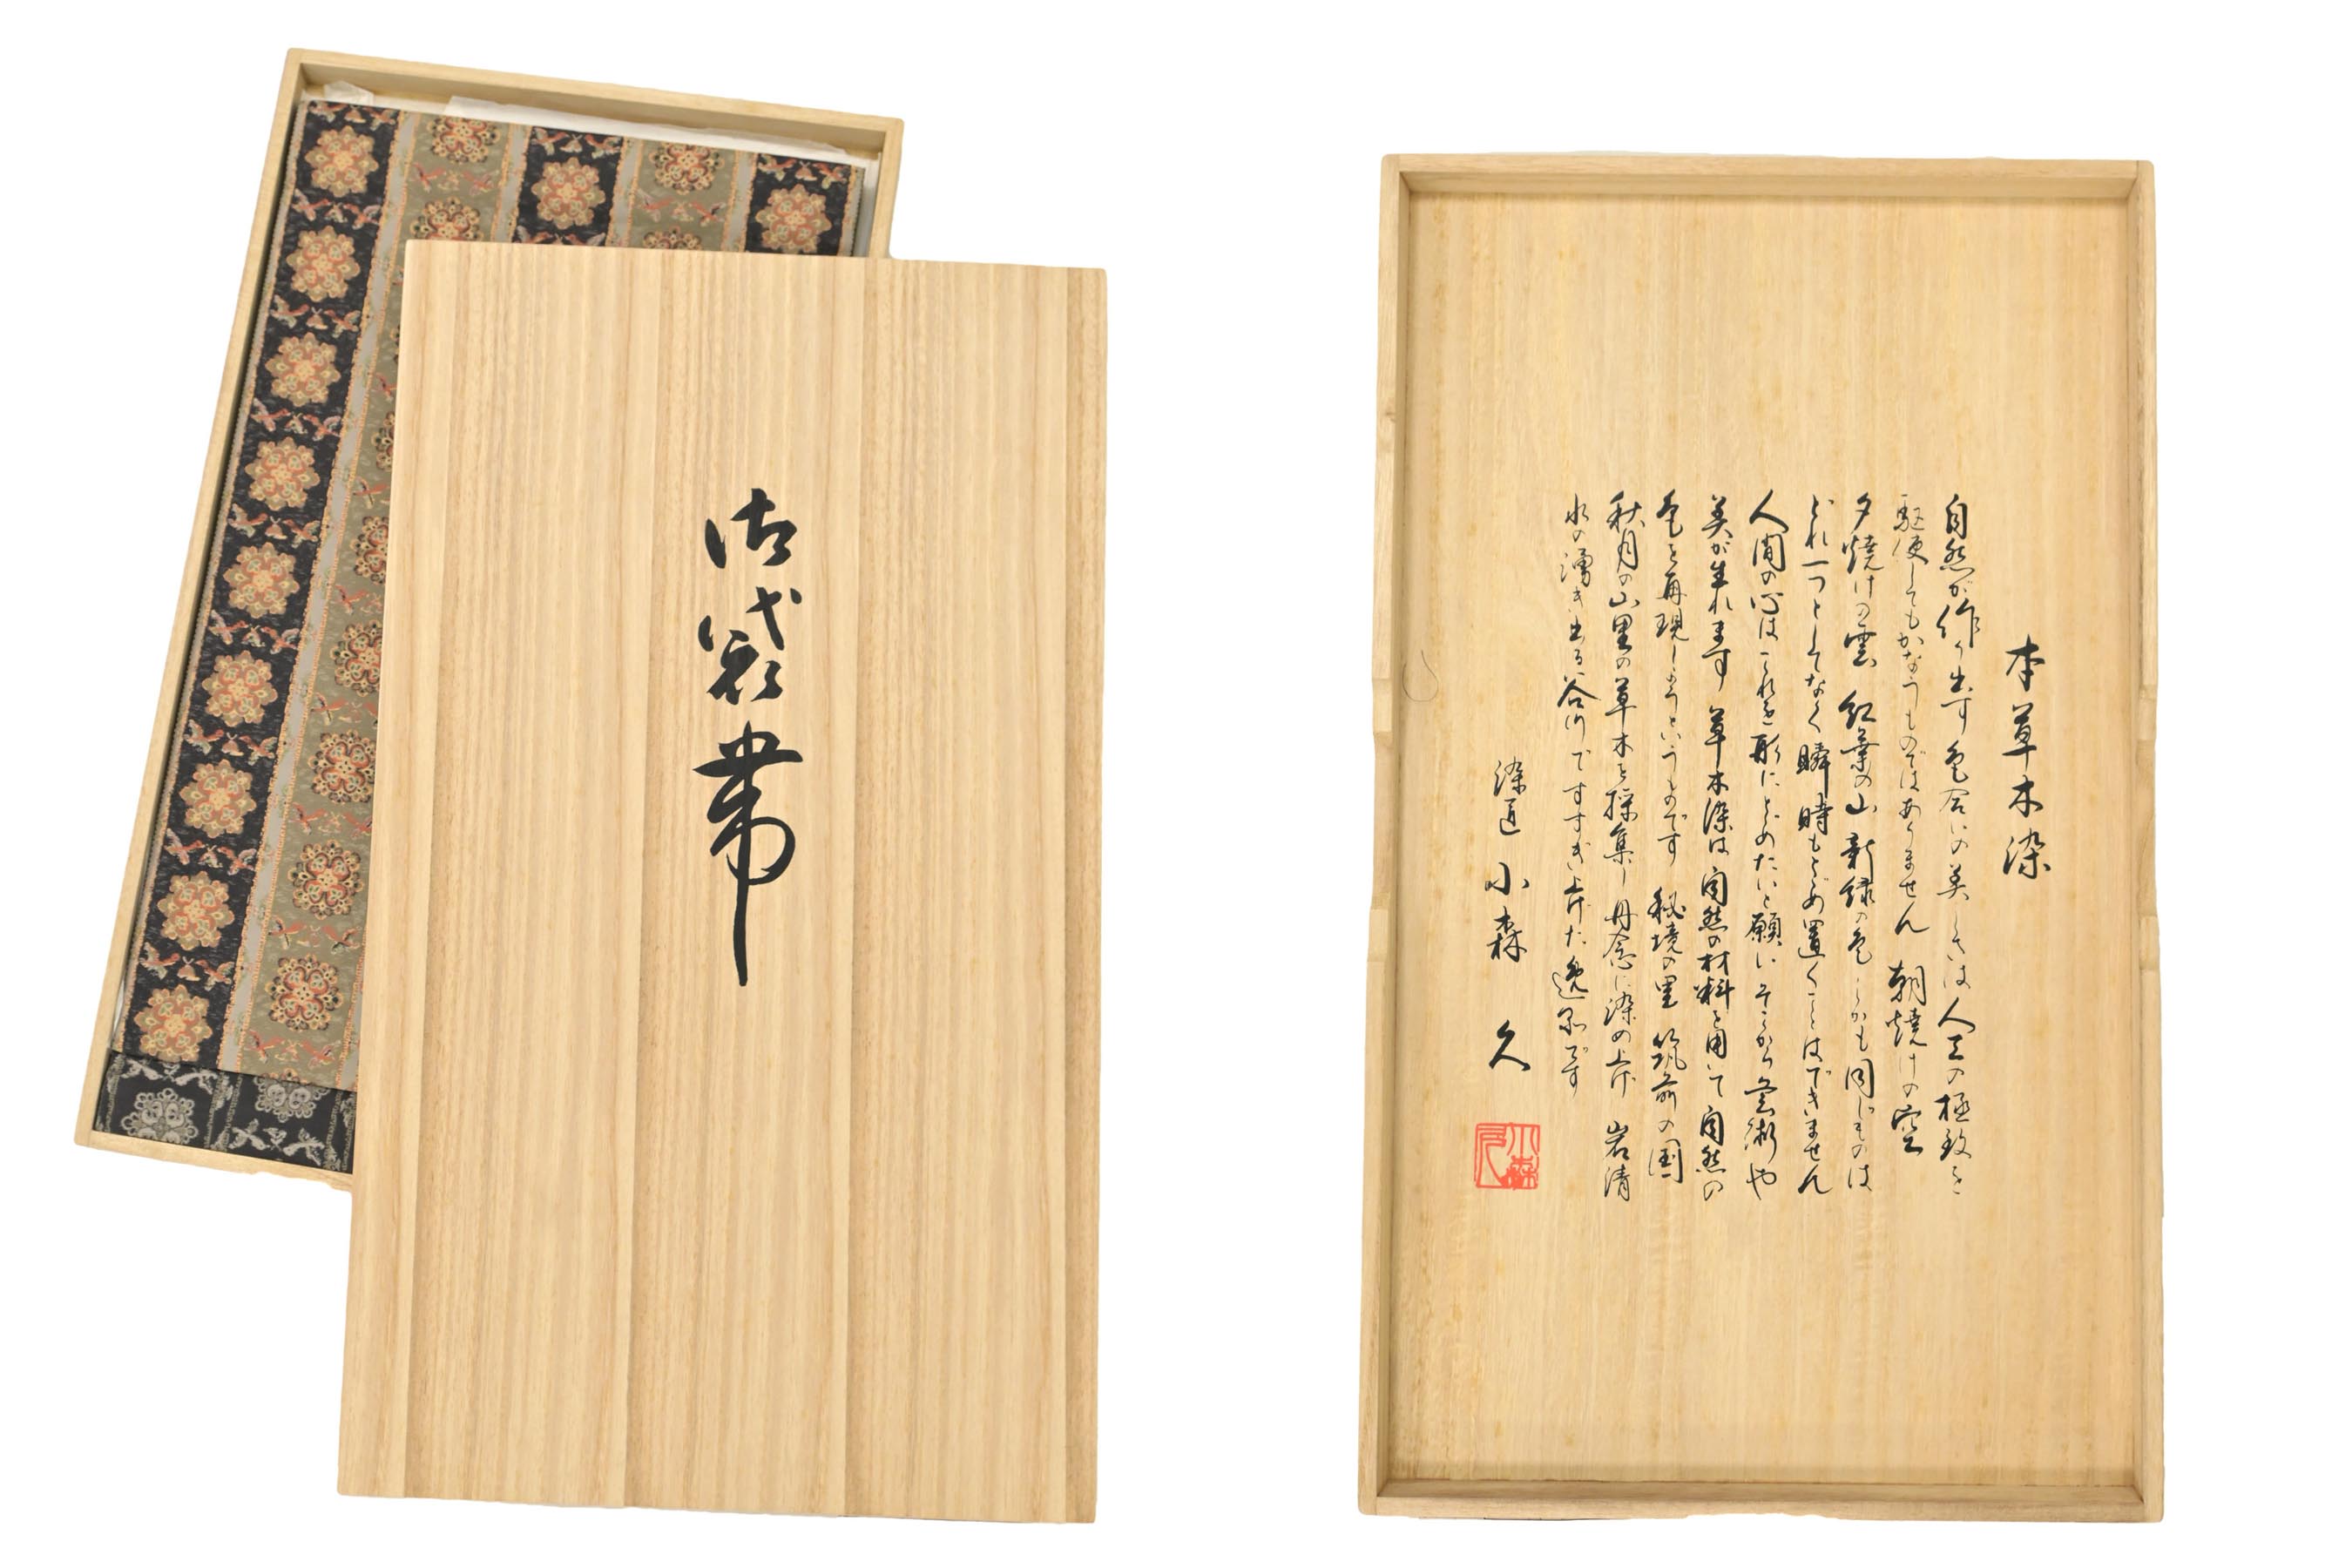 御袋帯
本草木染
自然が作り出す色合いの美しさは人工の極致を
駆使してもかなうものではありません 朝焼けの空
夕焼けの雲 紅葉の山 新緑の色しかも同じものは
どれ一つとしてなく瞬時もとどめ置くことはできません
人間の心はこれを形にとどめたいと願いそこから芸術や
美が生れます 草木染は自然の材料を用いて自然の
色を再現しようというものです 秘境の里 筑前の国
秋月の山里の草木を採集し丹念に染め上げ 岩清
水の湧き出る谷川ですすぎ上げた逸品です
染匠 小森 久
小森久